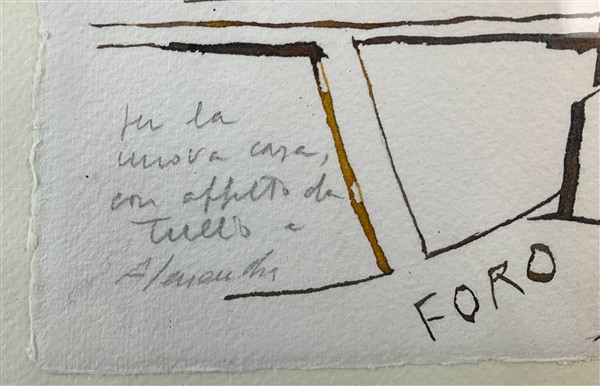 per la
nuova casa,
con affetto da
Tullio e
FORO